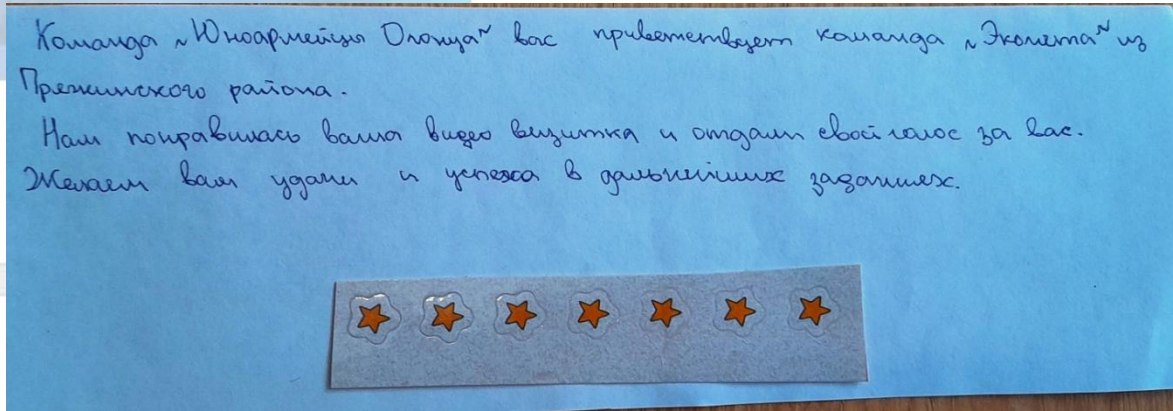 Команда "Юноармейцы Олонца" вас приветствует команда "Эколета" из
Пряжинского района.
Нам понравилась ваша видео визитка и отдали свой голос за вас.
Желаем вам удачи и успеха в дальнейших заданиях.